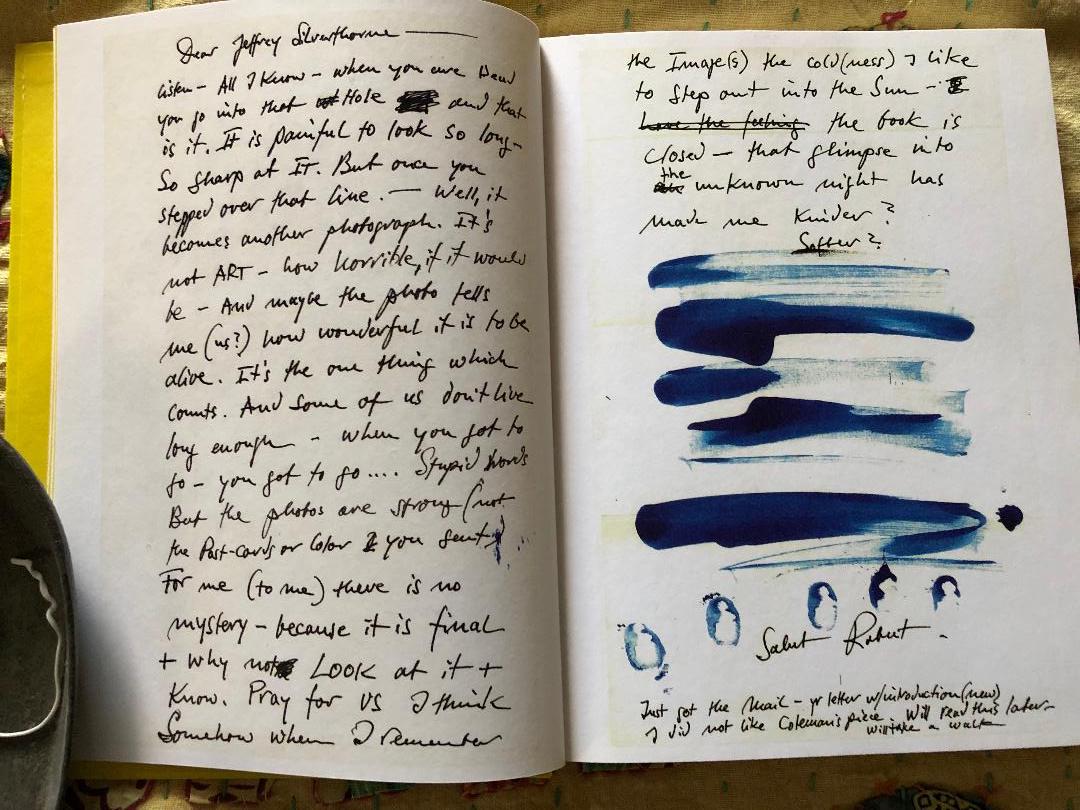 Dear Jeffrey Silverthorne —
Listen – All I know – when you are Dead
you go into that Hole and that
is it. It is painful to look so long –
So sharp at IT. But once you
stepped over that line. — Well, it
becomes another photograph. It's
not ART – how horrible, if it would
be – And maybe the photo tells
me (us?) how wonderful it is to be
alive. It's the one thing which
counts. And some of us don't live
long enough – when you got to
go – you got to go .... Stupid Words
But the photos are strong (not
the Post-cards or Color you sent)
For me (to me) there is no
mystery – because it is final
+ why not LOOK at it +
Know. Pray for us I think
Somehow when I remember
the Image(s) the cold(ness) I like
to step out into the Sun –
have the feeling the book is
closed – that glimpse into
the
unknown night has
made me Kinder?
Softer?
Salut Robert –
Just got the Mail – yr letter w/introduction (new)
I did not like Coleman's piece. Will read this later –
will take a walk